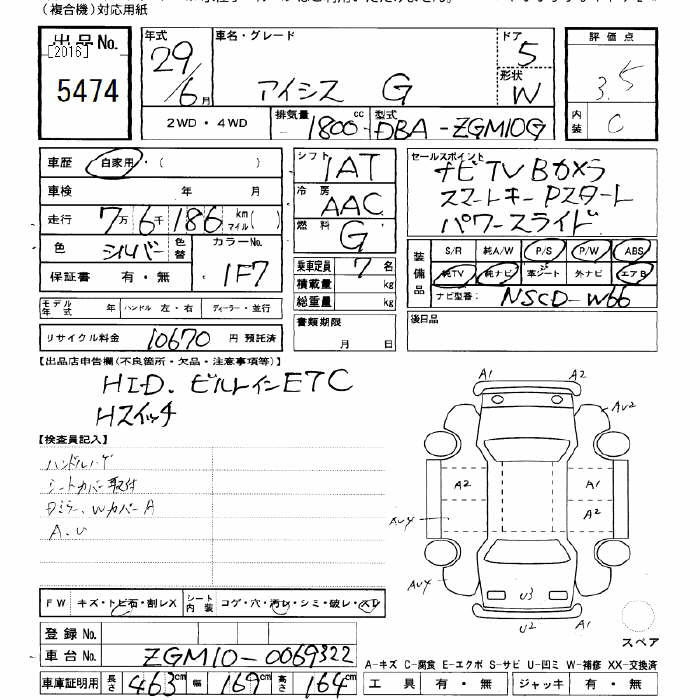 (複合機)対応用紙
出品No.
[2016]
5474
年式
29/6月
車名・グレード
アイシス G
ドア
5
形状
W
評価点
3.5
内装
C
2WD・4WD
排気量
1800
cc
型式
DBA-ZGM10G
車歴
自家用・( )
車検 年 月
走行 7万6千186 km マイル( )
色 シルバー 色替
カラーNo.
1F7
保証書 有・無
シフト 1AT
冷房 AAC
燃料 G
乗車定員 7名
積載量 kg
総重量 kg
セールスポイント
ナビTV Bカメラ
スマートキー Pスタート
パワースライド
装備品
S/R 純A/W P/S P/W ABS
純TV 純ナビ 革シート 外ナビ エアB
ナビ型番: NSCD-W66
モデル年式 年 ハンドル 左・右 ディーラー・並行
リサイクル料金 10670 円 預託済
書類期限
月 日
後日品
【出品店申告欄(不良箇所・欠品・注意事項等)】
HID. ビルトインETC
Hスイッチ
【検査員記入】
シートカバー取付
Dミラー、WカバーA
A.U
A1 A2
AU2
A2 A1
A2
AU4
AU4
U3
U2 A1
スペア
FW キズ・トビ石・割レX
シート内装 コゲ・穴・汚レ・シミ・破レ・スレ
登録No.
車台No. ZGM10-0069322
A-キズ C-腐食 E-エクボ S-サビ U-凹ミ W-補修 XX-交換済
車庫証明用 長さ 463cm 幅 169cm 高さ 164cm
工具 有・無 ジャッキ 有・無